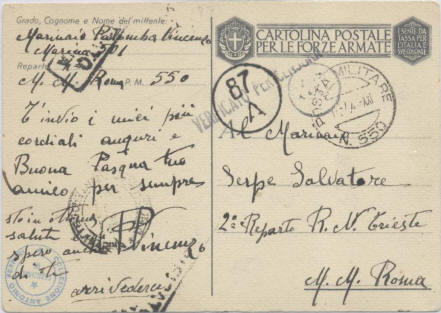 Grado, Cognome e Nome del mittente:
Marinaio Palomba Vincenzo
Marina 501
Reparto
M. M. Roma P. M. 550
T'invio i miei più
cordiali auguri e
Buona Pasqua tuo
amico per sempre
Vincenzo
sto in ottima
salute
spero anche
di te
arrivederci
CARTOLINA POSTALE
PER LE FORZE ARMATE
ESENTE DA
TASSA PER
L'ITALIA E
SUE COLONIE
VERIFICATO PER CENSURA
87
A
POSTA MILITARE
N. 550
Al Marinaio
Serpe Salvatore
2ª Reparto R. N. Trieste
M. M. Roma
COLLEZIONE ANTONIO